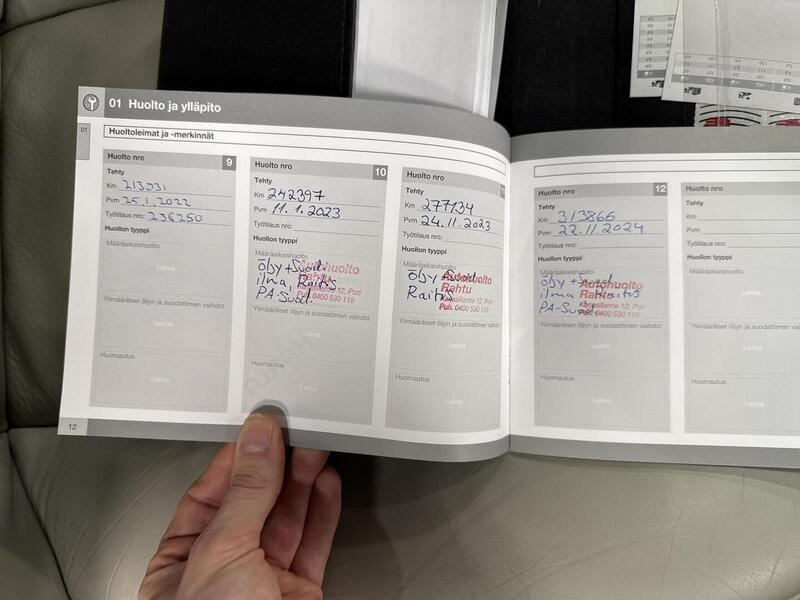 01 Huolto ja ylläpito
01
Huoltoleimat ja -merkinnät
Huolto nro 9
Tehty
Km 213031
Pvm 25.1.2022
Työtilaus nro: 236250
Huollon tyyppi
Määräaikaishuolto
Leima
Ylimääräiset öljyn ja suodattimen vaihdot
Leima
Huomautus
Leima
12
Huolto nro 10
Tehty
Km 242397
Pvm 11.1.2023
Työtilaus nro:
Huollon tyyppi
Määräaikaishuolto
öljy + Suod.
ilma, Raitis
PA-Suod.
Autohuolto
Rahtu
12, Pori
Puh. 0400 530 118
Ylimääräiset öljyn ja suodattimen vaihdot
Leima
Huomautus
Huolto nro
Tehty
Km 277134
Pvm 24.11.2023
Työtilaus nro:
Huollon tyyppi
Määräaikaishuolto
öljy + Suod.
Raitis
Autohuolto
Rahtu
12, Pori
Puh. 0400 530 118
Ylimääräiset öljyn ja suodattimen vaihdot
Leima
Huomautus
Leima
Huolto nro 12
Tehty
Km 313866
Pvm 22.11.2024
Työtilaus nro:
Huollon tyyppi
Määräaikaishuolto
öljy + Suod.
ilma, Raitis
PA-Suod.
Autohuolto
Rahtu
12, Pori
Puh. 0400 530 118
Ylimääräiset öljyn ja suodattimen vaihdot
Leima
Huomautus
Leima
Huolto nro
Tehty
Km
Pvm
Työtilaus nro:
Huollon tyyppi
Määräaikaishuolto
Leima
Ylimääräiset öljyn ja suodattimen
Leima
Huomautus
Leima